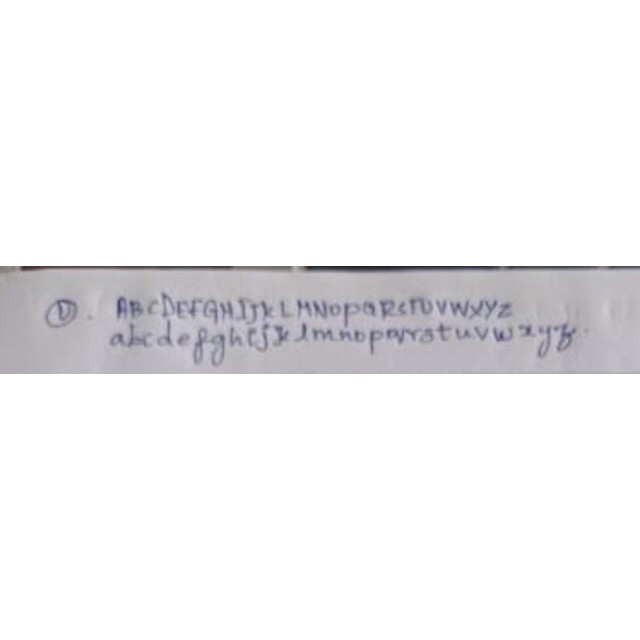 ①. ABCDEFGHIJKLMNOPQRSTUVWXYZ
abcdefghijklmnopqrstuvwxyz.